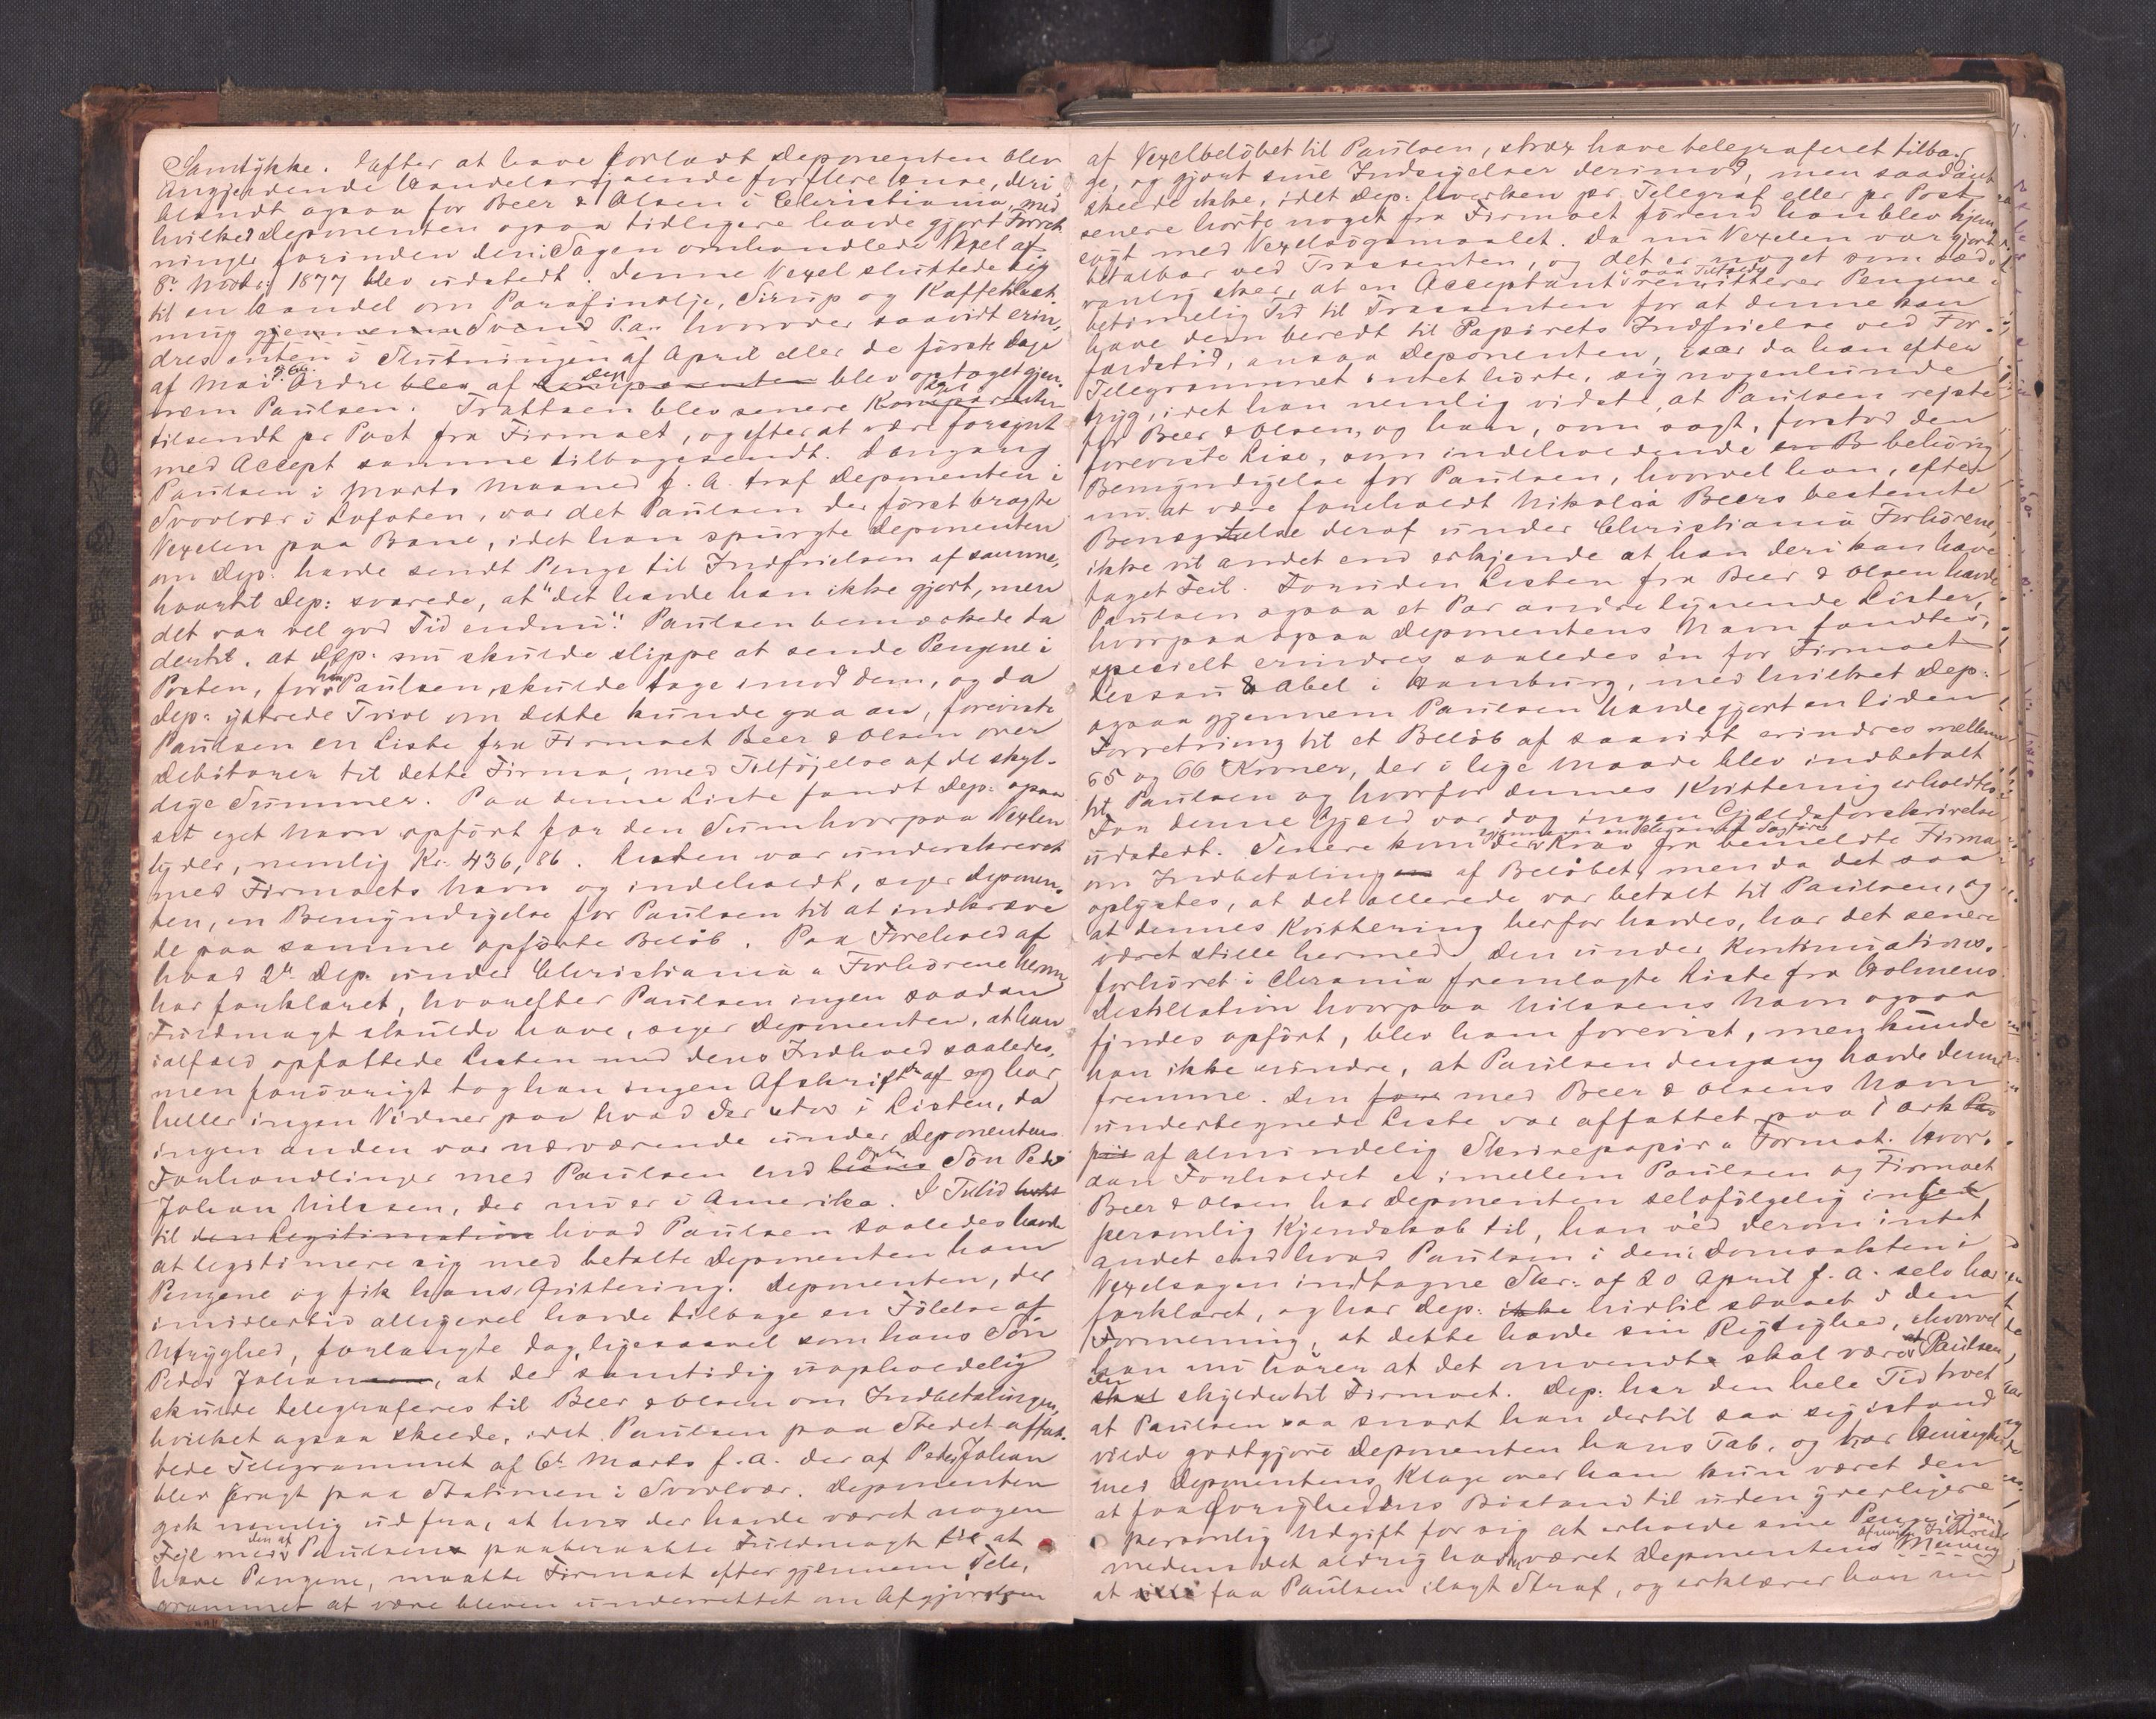 Samtykke. Efter at have forladt Deponenten blev
Angjældende Handelsrejsende for flere Huse, deri
blandt ogsaa for Beer & Olsen i Christiania, med
hvilket Deponenten ogsaa tidligere havde gjort Forret-
ninger forinden den i Sagen omhandlede Vexel af
8de Novbr: 1877 blev udstedt. Denne Vexel sluttede sig
til en Handel om Parafinolje, Sirup og Kaffe
hvorover saavidt erin-
dres enten i Slutningen af April eller de første Dage
af Mai Ordre blev af blev optaget gjen-
nem Paulsen. Trattaen blev senere
tilsendt pr Post fra Firmaet, og efter at være forsynt
med Accept samme tilbagesendt. Dengang
Paulsen i Marts Maaned f. A. traf Deponenten i
Svolvær i Lofoten, var det Paulsen der først bragte
Vexelen paa Bane, idet han spurgte Deponenten
om Dep: havde sendt Penge til Indfrielsen af samme,
hvortil Dep: svarede, at "det havde han ikke gjort, men
det var vel god Tid endnu". Paulsen bemærkede da
dertil, at Dep: nu skulde slippe at sende Pengene i
Posten, for han Paulsen, skulde tage imod dem, og da
Dep: yttrede Tvivl om dette kunde gaa an, foreviste
Paulsen en Liste fra Firmaet Beer & Olsen over
Debitorer til dette Firma, med Tilføjelse af de skyl-
dige Summer. Paa denne Liste fandt Dep: ogsaa
sit eget Navn opført for den Sum hvorpaa Vexlen
lyder, nemlig Kr. 436,86. Listen var underskrevet
med Firmaets Navn og indeholdt, siger Deponen-
ten, en Bemyndigelse for Paulsen til at indkræve
de paa samme opførte Beløb. Paa Forehold af
hvad 2det Dep: under Christiania Forhørene
har forklaret, hvorefter Paulsen ingen saadan
Fuldmagt skulde have, siger Deponenten, at han
ialfald opfattede Listen med dens Indhold saaledes,
men forøvrigt tog han ingen Afskrift af og har
heller ingen Vidner paa hvad der stod i Listen, da
ingen anden var nærværende under Deponentens
Forhandlinger med Paulsen end Søn Peder
Johan Nilssen, der nu er i Amerika. I Tillid
til den Legitimation hvad Paulsen saaledes havde
at legitimere sig med betalte Deponenten ham
Pengene og fik hans Qvittering. Deponenten, der
imidlertid alligevel havde tilbage en Følelse af
Utryghed, forlangte dog, ligesaavel som hans Søn
Peder Johan, at der samtidig uopholdelig
skulde telegraferes til Beer & Olsen om Indbetalingen,
hvilket ogsaa skeede, idet Paulsen paa Stedet affat-
tede Telegrammet af 6te Marts f. A. der af Peder Johan
blev bragt paa Stationen i Svolvær. Deponenten
gik nemlig ud fra, at hvis der havde været nogen
Fejl med den af Paulsen paaberaabte Fuldmagt til at
have Pengene, maatte Firmaet efter gjennem Tele-
grammet at være bleven underrettet om Afgjørelsen
af Vexelbeløbet til Paulsen, strax have telegraferet tilba-
ge, og gjort sine Indsigelser derimod, men saadant
skeede ikke, idet Dep: hverken pr. Telegraf eller pr Post
senere hørte noget fra Firmaet førend han blev hjem-
søgt med Vexelsøgsmaalet. Da nu Vexelen var gjort
betalbar ved Trassenten, og det er noget som sæd-
vanlig sker, at en Acceptant i saa Tilfælde remitterer Pengene i
betimelig Tid til Trassenten for at denne kan
have dem beredt til Papirets Indfrielse ved For-
faldstid, ansaa Deponenten, især da han efter
Telegrammet intet hørte, sig nogenlunde
tryg, idet han nemlig vidste, at Paulsen rejste
for Beer & Olsen, og han, som sagt, forstod den
foreviste Liste, som indeholdende en B behørig
Bemyndigelse for Paulsen, hvorvel han, efter
nu at være foreholdt Nikolai Beers bestemte
Benægtelse deraf under Christiania Forhørene,
ikke vil andet end erkjende at han deri kan have
taget Feil. Foruden Listen fra Beer & Olsen havde
Paulsen ogsaa et Par andre lignende Lister,
hvorpaa ogsaa Deponentens Navn fandtes,
specielt erindres saaledes én for Firmaet
Dessau & Abel i Hamburg, med hvilket Dep:
ogsaa gjennem Paulsen havde gjort en liden
Forretning til et Beløb af saavidt erindres mellem
65 og 66 Kroner, der i lige Maade blev indbetalt
til Paulsen og hvorfor dennes Kvittering erholdtes.
For denne Gjæld var dog ingen Gjældsforskrivelse
udstedt. Senere kom der Krav fra bemeldte Firma
om Indbetaling af Beløbet, men da det saa
oplystes, at det allerede var betalt til Paulsen, og
at dennes Kvittering herfor havdes, har det senere
været stille hermed. Den under Kontinuations-
forhøret i Chrania fremlagte Liste fra Holmens
Destillation hvorpaa Nilssens Navn ogsaa
findes opført, blev ham forevist, men kunde
han ikke erindre, at Paulsen dengang havde denne
fremme. Den med Beer & Olsens Navn
undertegnede Liste var affattet paa 1 Ark
af almindelig Skrivepapirs Format. Hvor-
dan Forholdet er imellem Paulsen og Firmaet
Beer & Olsen har Deponenten selvfølgelig intet
personlig Kjendskab til, han véd derom intet
andet end hvad Paulsen i den i Domsakten i
Vexelsagen indtagne Skr: af 20 April f. A. selv har
forklaret, og har Dep: ikke hidtil staaet i den
Formening, at dette havde sin Rigtighed, hvorvel
han nu hører at det omvendte skal være at Paulsen
skal skylder til Firmaet. Dep: har den hele Tid troet
at Paulsen saa snart han dertil saa sig istand
vilde godtgjøre Deponenten hans Tab, og har Hensigten
med Deponentens Klage over ham kun været den
at faa Øvrighedens Bistand til uden yderligere
personlig Udgift for sig at erholde sine Penge igjen
medens det aldrig har været Deponentens Mening
at faa Paulsen ilagt Straf, og erklærer han nu